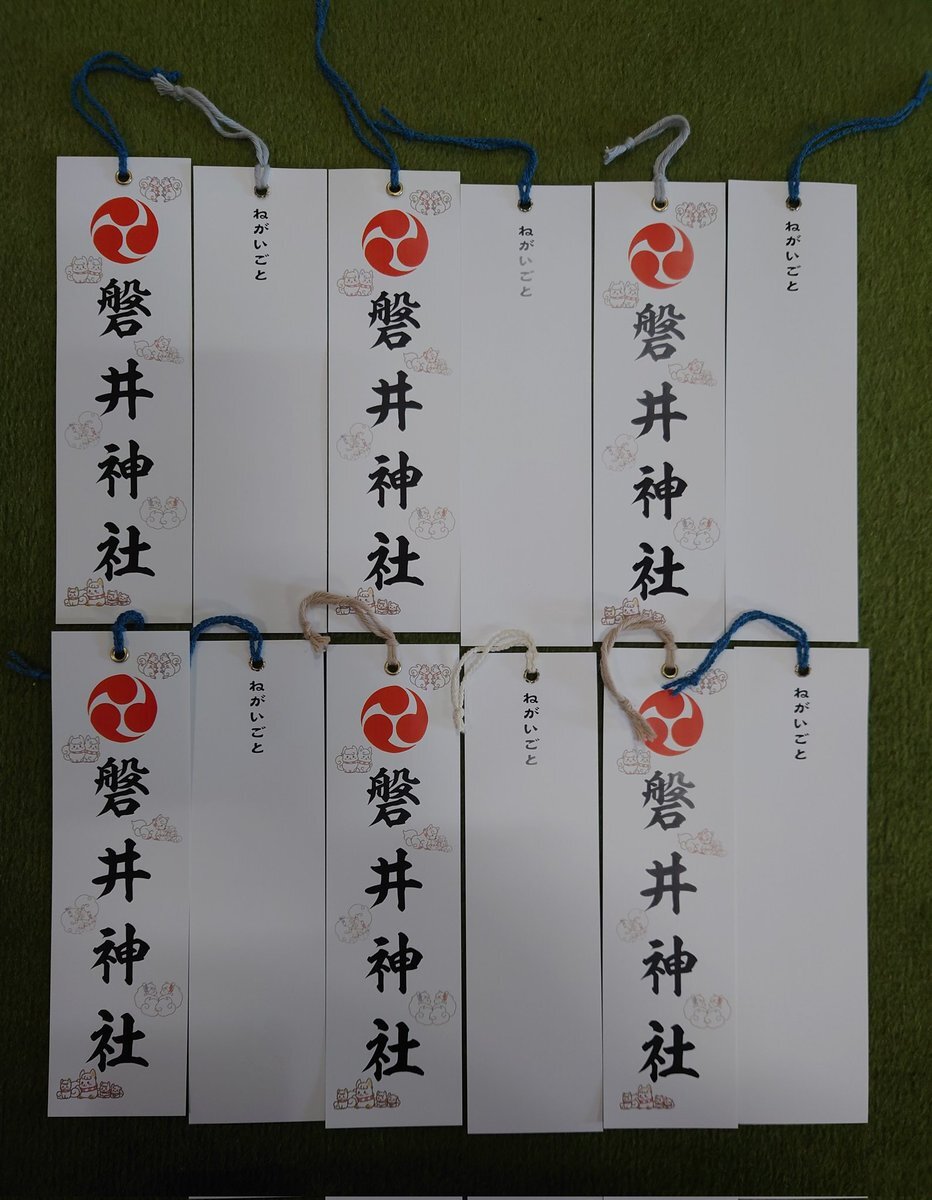 磐井神社
ねがいごと
磐井神社
ねがいごと
磐井神社
ねがいごと
磐井神社
ねがいごと
磐井神社
ねがいごと
磐井神社
ねがいごと